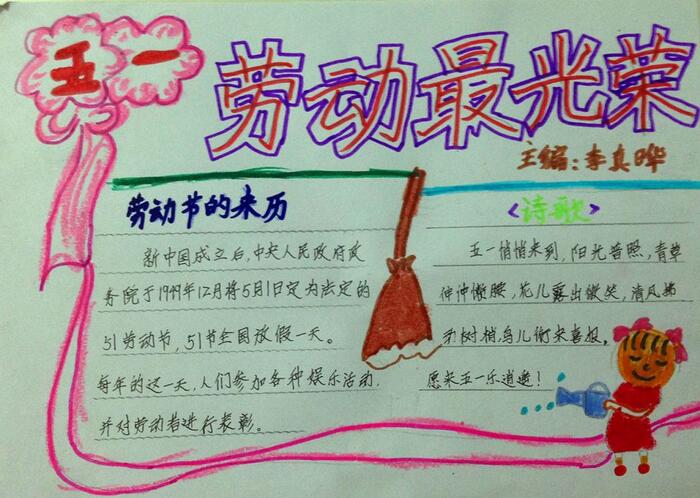 五一
劳动最光荣
主编：李真晔
劳动节的来历
新中国成立后，中央人民政府政
务院于1949年12月将5月1日定为法定的
51劳动节，51节全国放假一天。
每年的这一天，人们参加各种娱乐活动，
并对劳动者进行表彰。
<诗歌>
五一悄悄来到，阳光普照，青草
伸伸懒腰，花儿露出微笑，清风
树梢，鸟儿衔来喜报，
愿君五一乐逍遥！